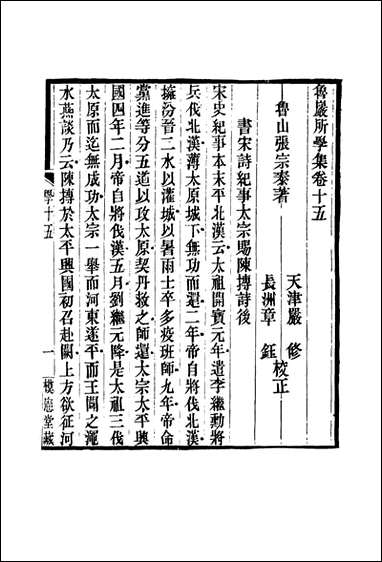 魯巖所學集卷十五
天津嚴　修
魯山張宗泰著　校正
長洲章　鈺
書宋詩紀事太宗賜陳摶詩後
宋史紀事本末平北漢云太祖開寶元年遣李繼勳將
兵伐北漢薄太原城下無功而還二年帝自將伐北漢
擁汾晉二水以灌城以暑雨士卒多疫班師九年帝命
黨進等分五道以攻太原契丹救之師還太宗太平興
國四年二月帝自將伐漢五月劉繼元降是太祖三伐
太原而迄無成功太宗一舉而河東遂平而王闢之澠
水燕談乃云陳摶於太平興國初召赴闕上方欲征河
學十五
一
模憲堂藏